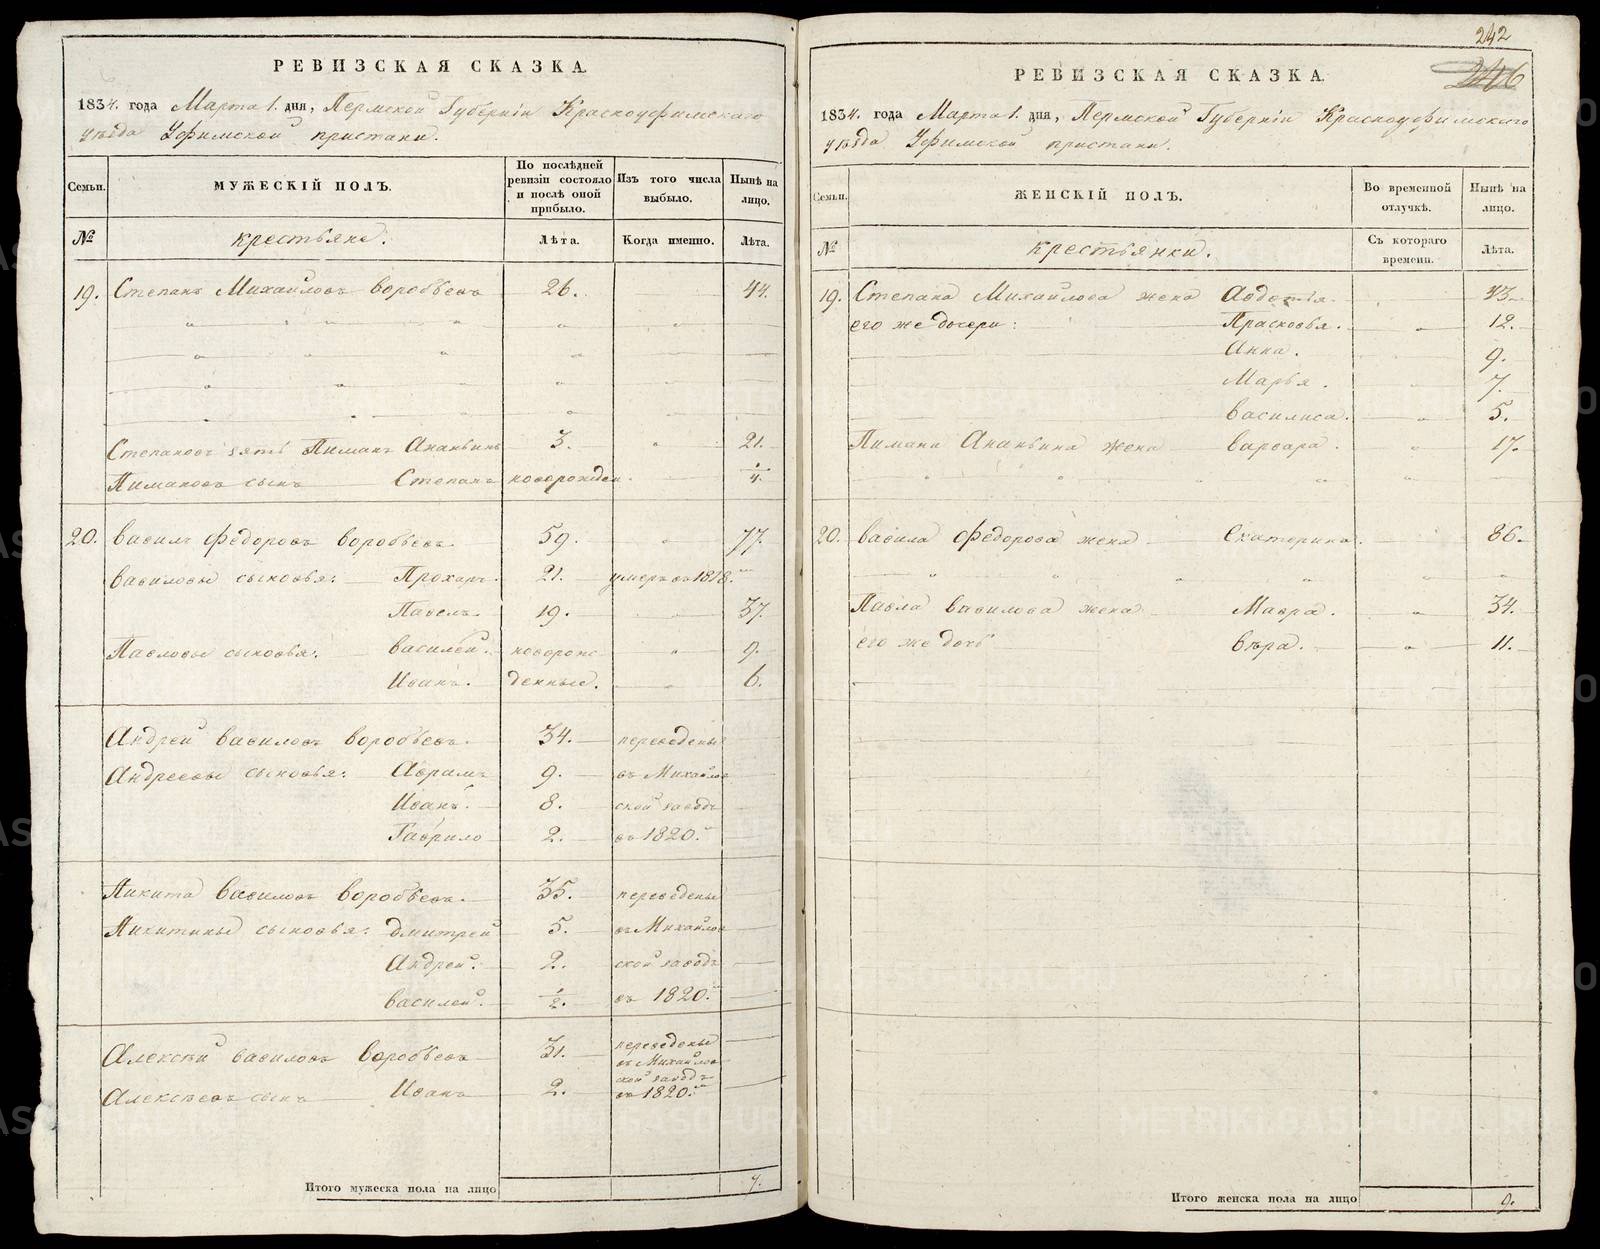 РЕВИЗСКАЯ СКАЗКА.
1834. года Марта 1. дня, Пермской Губерніи Красноуфимскаго
уѣзда Уфимской пристани.
Семьи.
МУЖЕСКІЙ ПОЛЪ.
По послѣдней ревизіи состояло и послѣ оной прибыло.
Изъ того числа выбыло.
Нынѣ на лицо.
№
крестьяне.
Лѣта.
Когда именно.
Лѣта.
19. Степанъ Михайловъ Воробьевъ 26. 44.
Степановъ зять Пиманъ Ананьинъ 3. 21.
Пимановъ сынъ Степанъ новорожден. 1/4.
20. Василъ Федоровъ Воробьевъ 59. 77.
Васильевы сыновья: Прохаръ. 21. умеръ въ 1818.
Павелъ. 19. 37.
Павловы сыновья: Василей. новорож 9.
Иванъ. денные. 6.
Андрей Василовъ Воробьевъ. 34. переведены
Андреевы сыновья: Аврамъ 9. въ Михайлов
Иванъ. 8. ской заводъ
Гаврило 2. въ 1820.
Никита Василовъ Воробьевъ. 35. переведены
Никитины сыновья: Дмитрей 5. въ Михайлов
Андрей. 2. ской заводъ
Василей. 1/2. въ 1820.
Алексѣй Василовъ Воробьевъ 31. переведены
въ Михайлов
ской заводъ
Алексѣевъ сынъ Иванъ 2. въ 1820.
Итого мужеска пола на лицо 7.
242
246
РЕВИЗСКАЯ СКАЗКА.
1834. года Марта 1. дня, Пермской Губерніи Красноуфимскаго
уѣзда Уфимской пристани.
Семьи.
ЖЕНСКІЙ ПОЛЪ.
Во временной отлучкѣ.
Нынѣ на лицо.
№
крестьянки.
Съ котораго времени.
Лѣта.
19. Степана Михайлова жена Авдотья. 43.
его же дочери: Прасковья. 12.
Анна. 9.
Марья. 7.
Василиса. 5.
Пимана Ананьина жена Варвара. 17.
20. Васила Федорова жена Екатерина. 86.
Павла Василова жена Мавра. 34.
его же дочь Вѣра. 11.
Итого женска пола на лицо 9.
METRIKI.GASO-URAL.RU